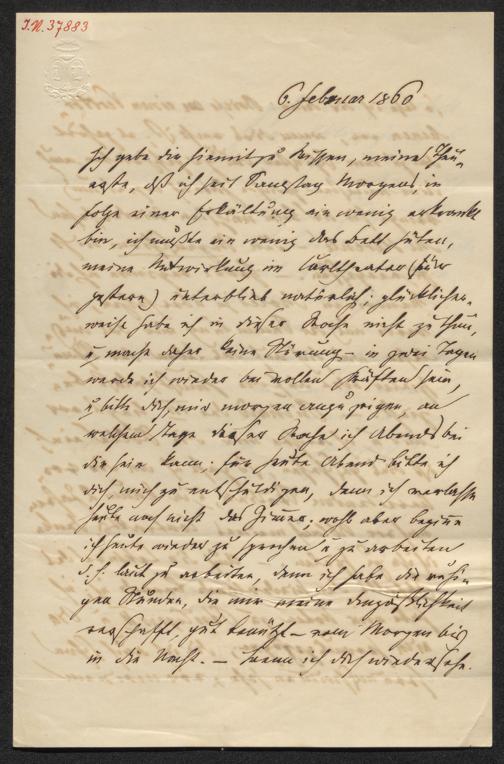 I.N. 37883
6. Februar 1860
Ich gebe dir hiemit zu wissen, meine Theu-
erste, dß ich seit Samstag Morgens, in
Folge einer Erkältung ein wenig erkrankt
bin, ich mußte ein wenig das Bett hüten,
meine Mitwirkung im Carltheater (für
gestern) unterblieb natürlich; glücklicher-
weise habe ich in dieser Woche nicht zu thun,
u mache daher keine Störung – in zwei Tagen
werde ich wieder bei vollen Kräften sein,
u bitte dich, mir morgen anzuzeigen, an
welchem Tage dieser Woche ich Abends bei
dir sein kann; für heute Abend bitte ich
dich mich zu entschuldigen, denn ich verlasse
heute noch nicht das Zimmer. wohl aber beginne
ich heute wieder zu sprechen u zu arbeiten
d. h. laut zu arbeiten, denn ich habe die ruhi-
gen Stunden, die mir meine Unpäßlichkeit
verschafft, gut benützt – vom Morgen bis
in die Nacht. – Wenn ich dich wiedersehe.